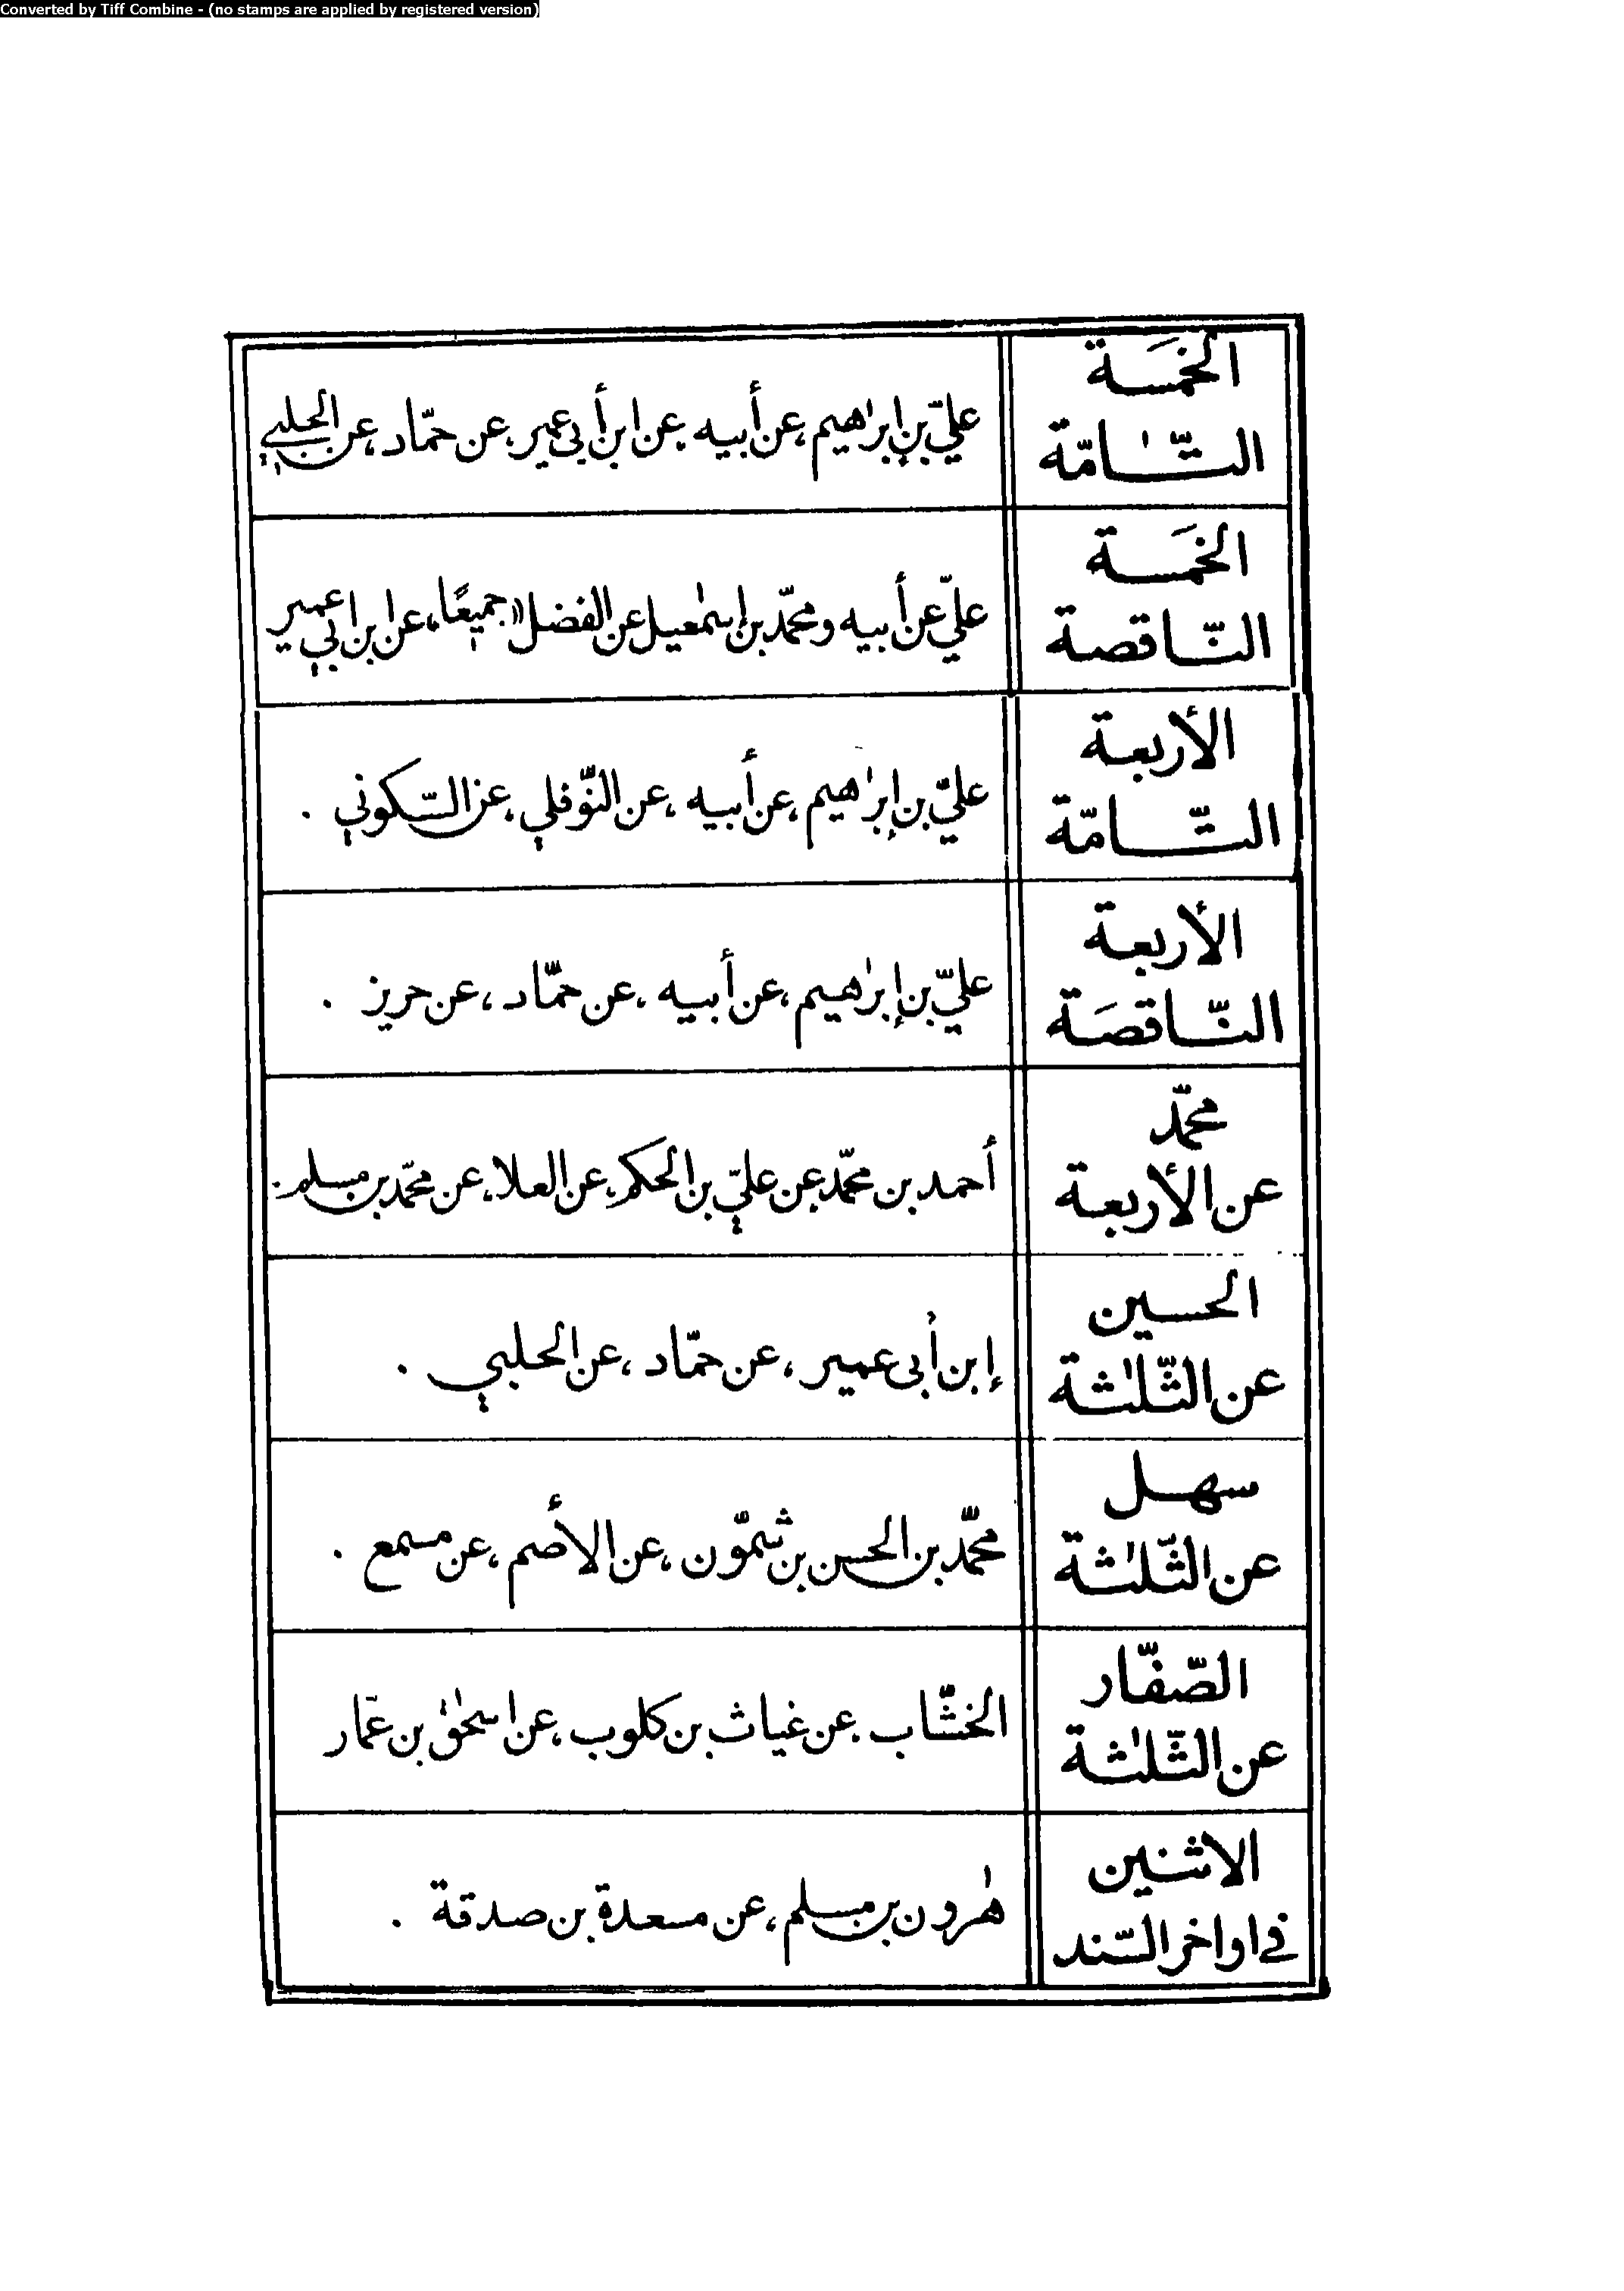 Converted by Tiff Combine - (no stamps are applied by registered version)
الخمَسَة
التّامّة
عليّ بن إبرٰاهيم، عن أبيه، عن ابن أبى عمير، عن حمّاد، عن الحلبي
الخمَسَة
النّاقصة
عليّ عن أبيه ومحمّد بن إسمٰعيل عن الفضل «جميعًا» عن ابن ابي عمير
الأربعة
التّامّة
عليّ بن إبرٰاهيم، عن أبيه، عن النّوفلي، عن السّكوني .
الأربعة
النّاقصَة
عليّ بن إبرٰاهيم، عن أبيه، عن حمّاد، عن حريز .
محمّد
عن الأربعة
أحمد بن محمّد عن عليّ بن الحكم، عن العلا، عن محمّد بن مسلم .
الحسين
عن الثّلٰثة
إبن أبى عمير، عن حمّاد، عن الحلبي .
سهل
عن الثّلٰثة
محمّد بن الحسن بن شمّون، عن الأصم، عن مسمع .
الصّفّار
عن الثّلٰثة
الخشّاب، عن غياث بن كلوب، عن اسحٰق بن عمّار
الاثنين
في اواخر السّند
هٰرون بن مسلم، عن مسعدة بن صدقة .